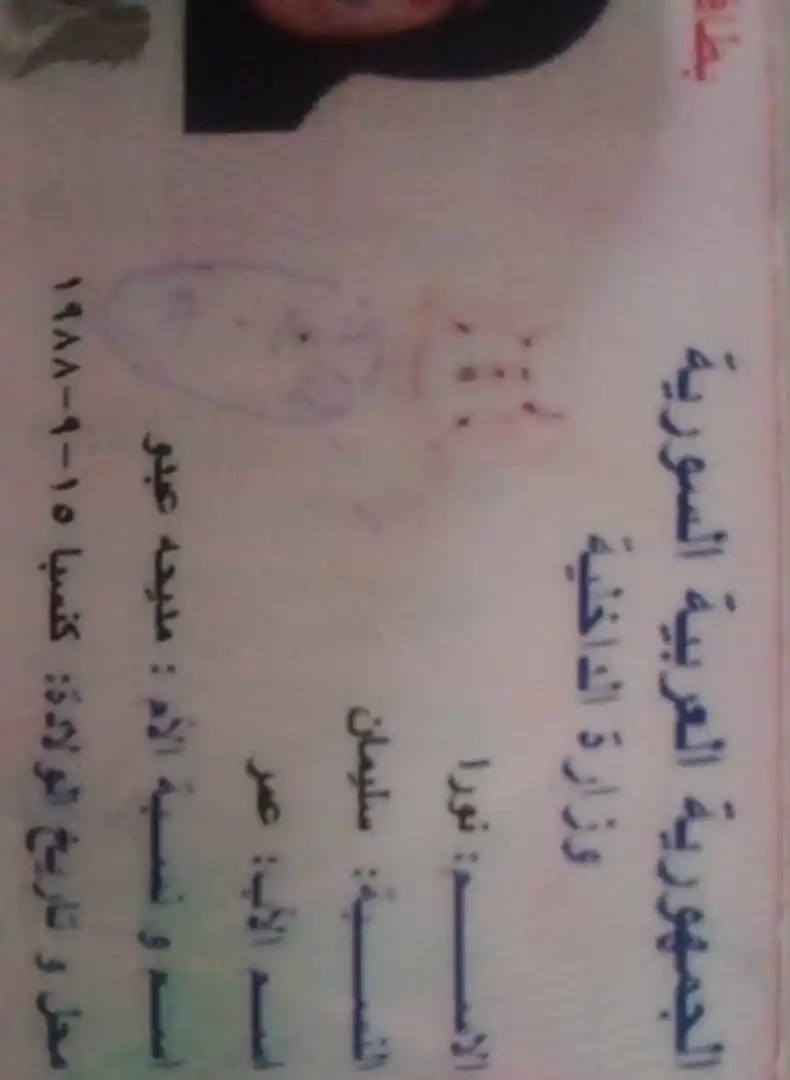 الجمهورية العربية السورية
وزارة الداخلية
الاســـــم: نورا
النســـبة: سليمان
اسم الأب: عمر
اسم و نسبة الأم : مليحه عبدو
محل و تاريخ الولادة: كنسبا ١٥-٩-١٩٨٨